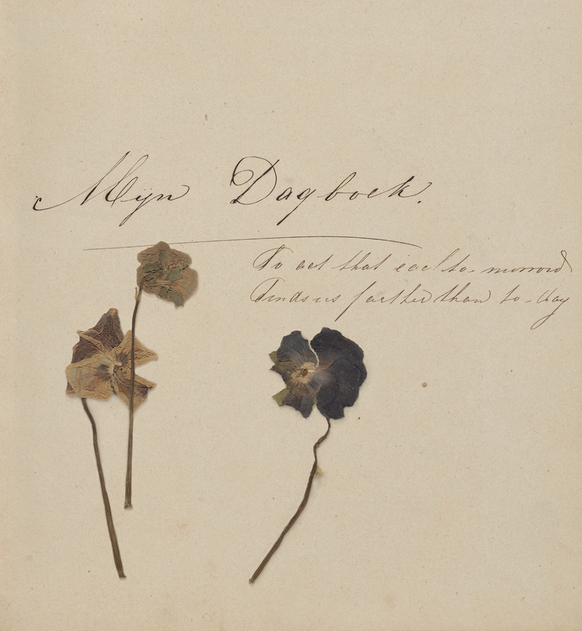 Mijn Dagboek.
To act that each to-morrow
Finds us farther than to-day